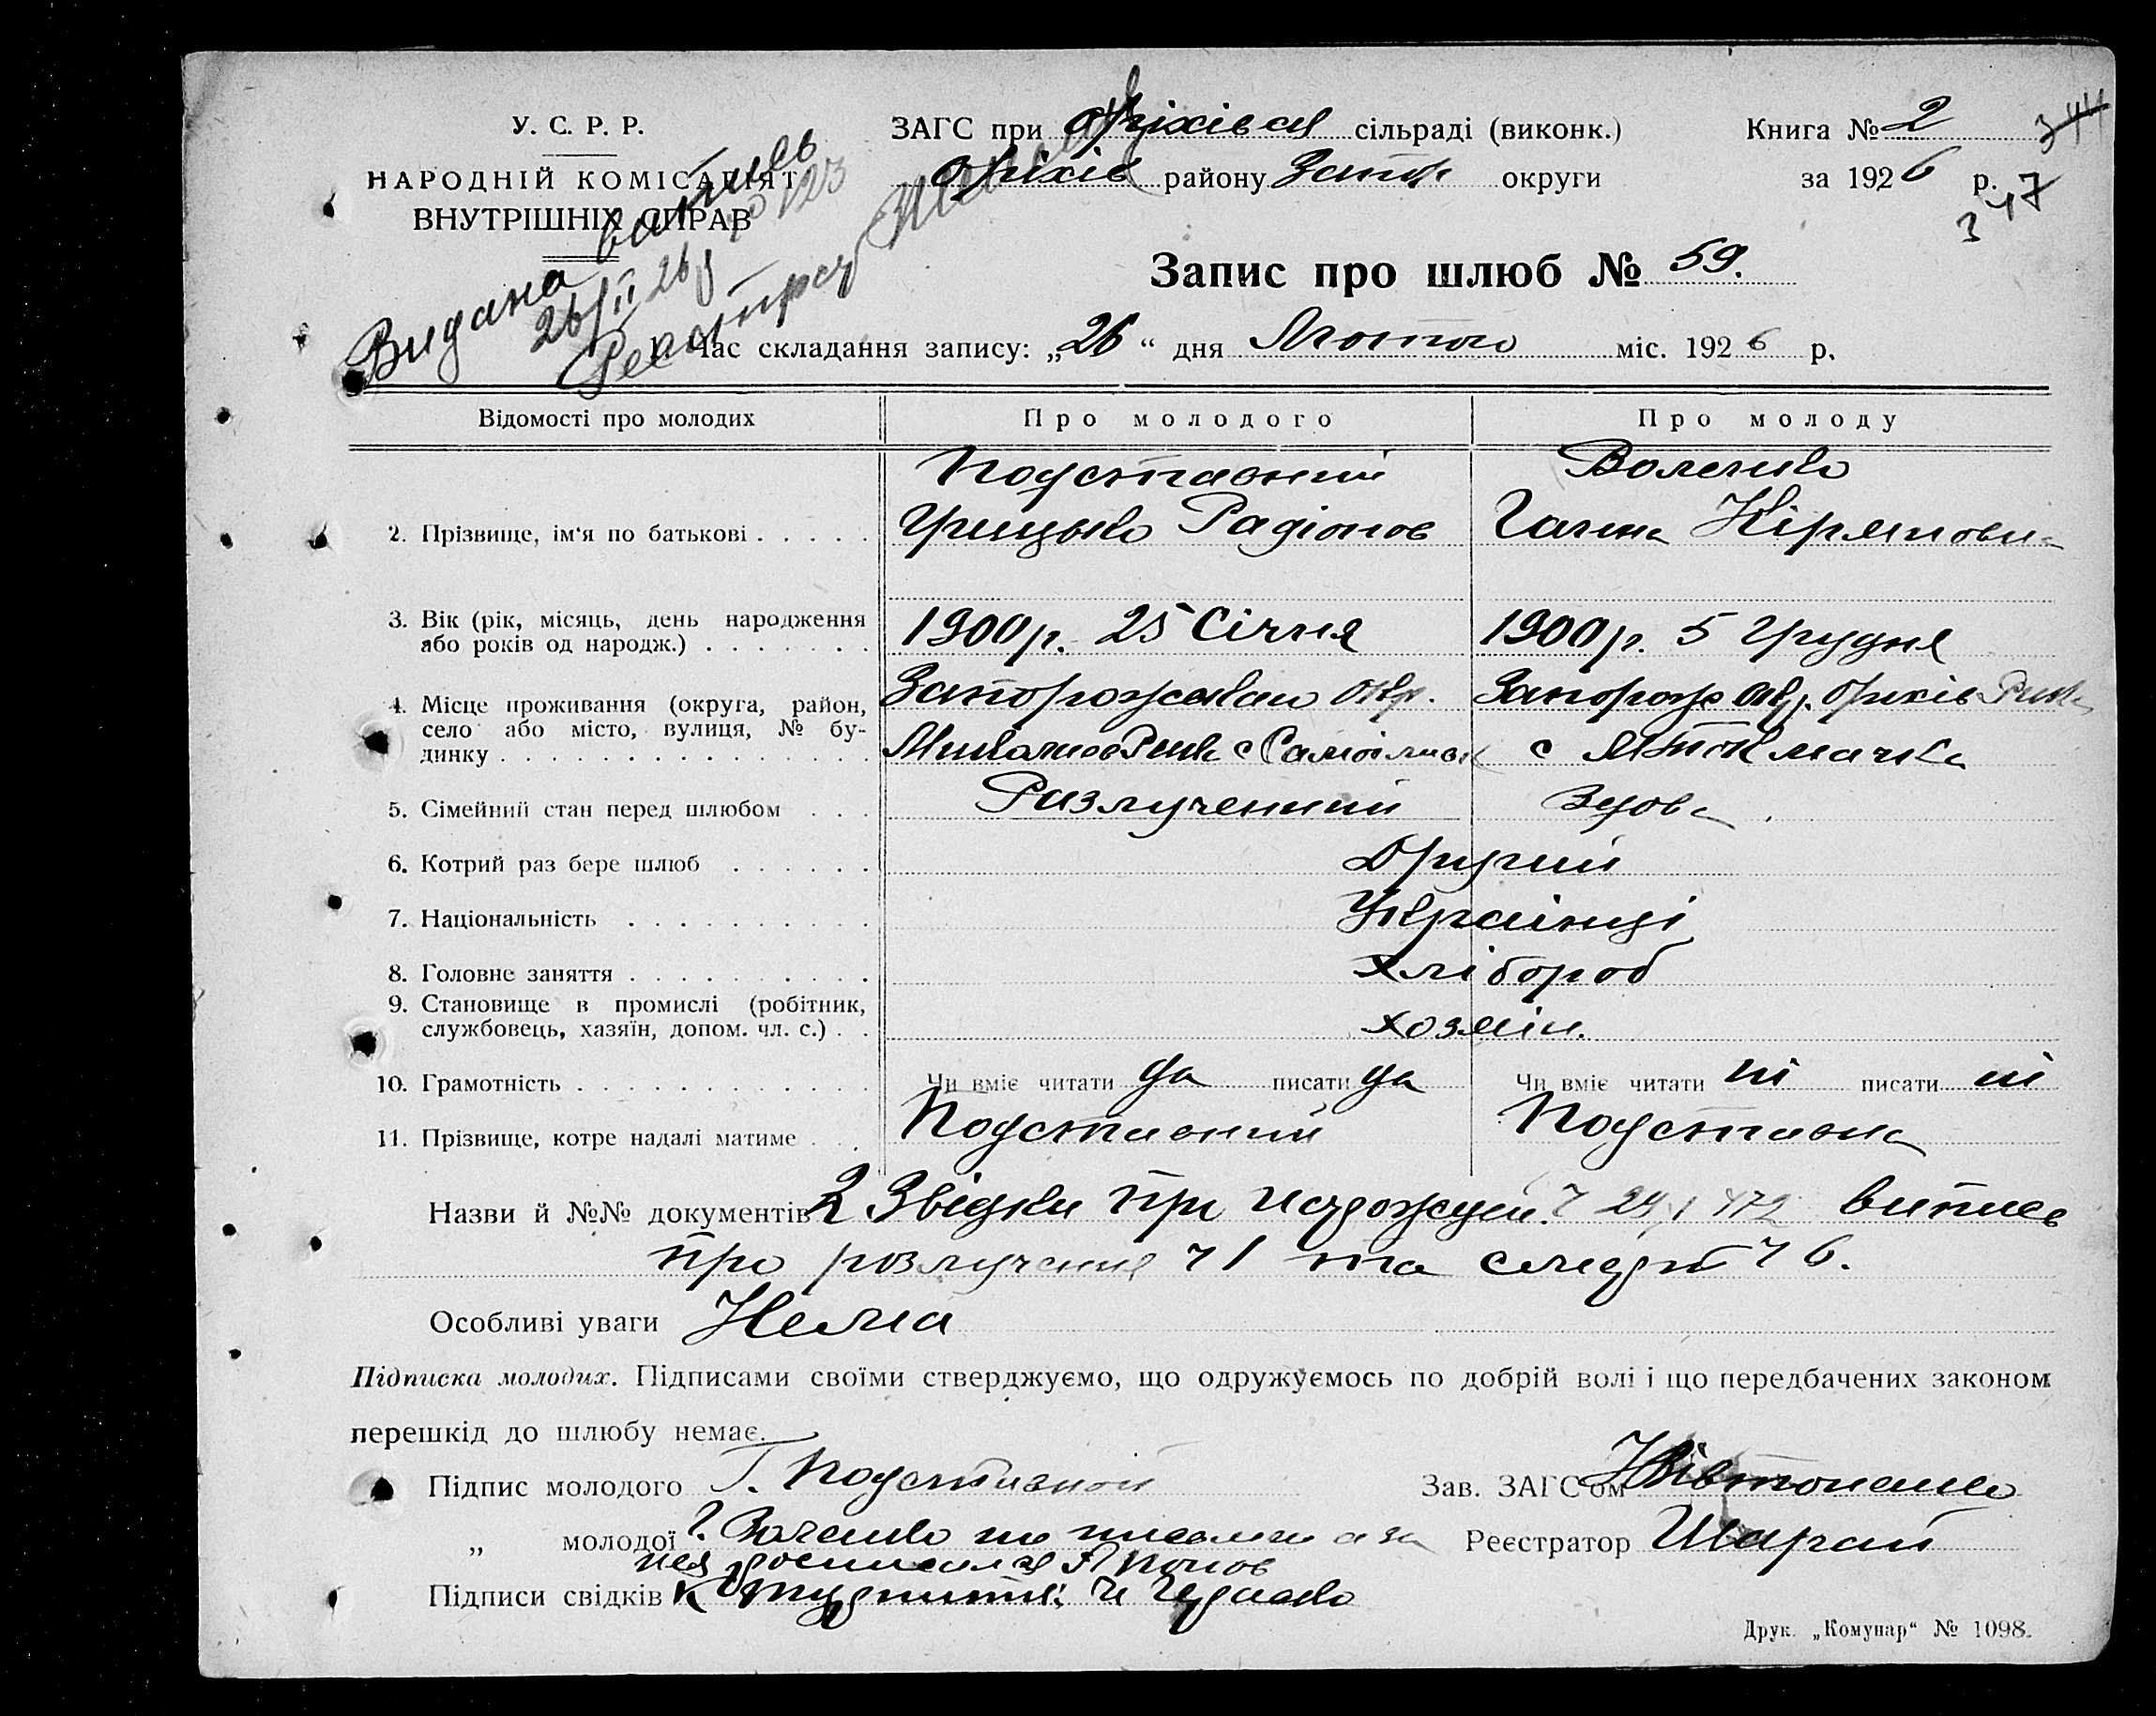 У. С. Р. Р.
НАРОДНІЙ КОМІСАРІЯТ
ВНУТРІШНІХ СПРАВ
Видана випись
26/II 26 р
Реєстратор
ЗАГС при Оріхівській сільраді (виконк.)
Оріхів району Запор округи
Книга № 2
344
за 1926 р.
347
Запис про шлюб № 59.
1. Час складання запису: „26“ дня Лютого міс. 1926 р.
Відомості про молодих Про молодого Про молоду
2. Прізвище, ім'я по батькові . . . . .
Подставний
Грицько Радіонов
Воленко
Ганна Кіряновна
3. Вік (рік, місяць, день народження
або років од народж.) . . . . . . .
1900р. 25 Січня
1900р. 5 Грудня
4. Місце проживання (округа, район,
село або місто, вулиця, № бу-
динку . . . . . . . . . . . . . . .
Запорожський Окр.
с
Запорож Окр. Оріхів
с Токмачка
5. Сімейний стан перед шлюбом . . . Разлученний Вдова
6. Котрий раз бере шлюб . . . . . . Другий
7. Національність . . . . . . . . . . Українці
8. Головне заняття . . . . . . . . . . Хлібороб
9. Становище в промислі (робітник,
службовець, хазяїн, допом. чл. с.) . .
Хозяін.
10. Грамотність . . . . . . . . . . . . Чи вміє читати да писати да Чи вміє читати ні писати ні
11. Прізвище, котре надалі матиме . . . Подставний Подставна
Назви й №№ документів 2 Звідки про ч 29 і 472 випись
про розлучення ч 1 та смерть ч 6.
Особливі уваги Нема
Підписка молодих. Підписами своїми стверджуємо, що одружуємось по добрій волі і що передбачених законом
перешкід до шлюбу немає.
Підпис молодого Г. Подставной
Зав. ЗАГС'ом
„ молодої Г. Воленко а за
нея росписался Попов
Реєстратор Шарай
Підписи свідків
Друк. „Комунар“ № 1098.